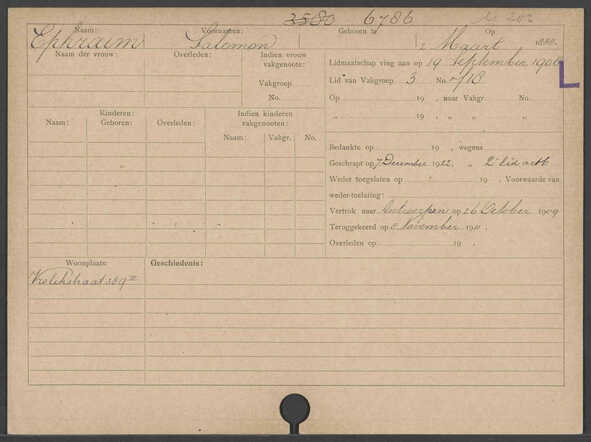 3580 6786
Naam: Voornamen: Geboren te Op
Ephraim Salomon 2 Maart 188
Naam der vrouw: Overleden: Indien vrouw vakgenoote:
Vakgroep
No.
Lidmaatschap ving aan op 19 September 1906
L
Lid van Vakgroep 3 No. 710
Op 19 , naar Vakgr. No.
„ 19 , „ „ „
Kinderen: Indien kinderen vakgenooten:
Naam: Geboren: Overleden: Naam: Vakgr. No.
Bedankte op 19 , wegens
Geschrapt op 7 December 1922 „ 2e lid art 6
Weder toegelaten op 19 . Voorwaarde van
weder-toelating:
Vertrok naar Antwerpen op 26 October 1909
Teruggekeerd op 8 November 1911.
Overleden op 19 .
Woonplaats: Geschiedenis: